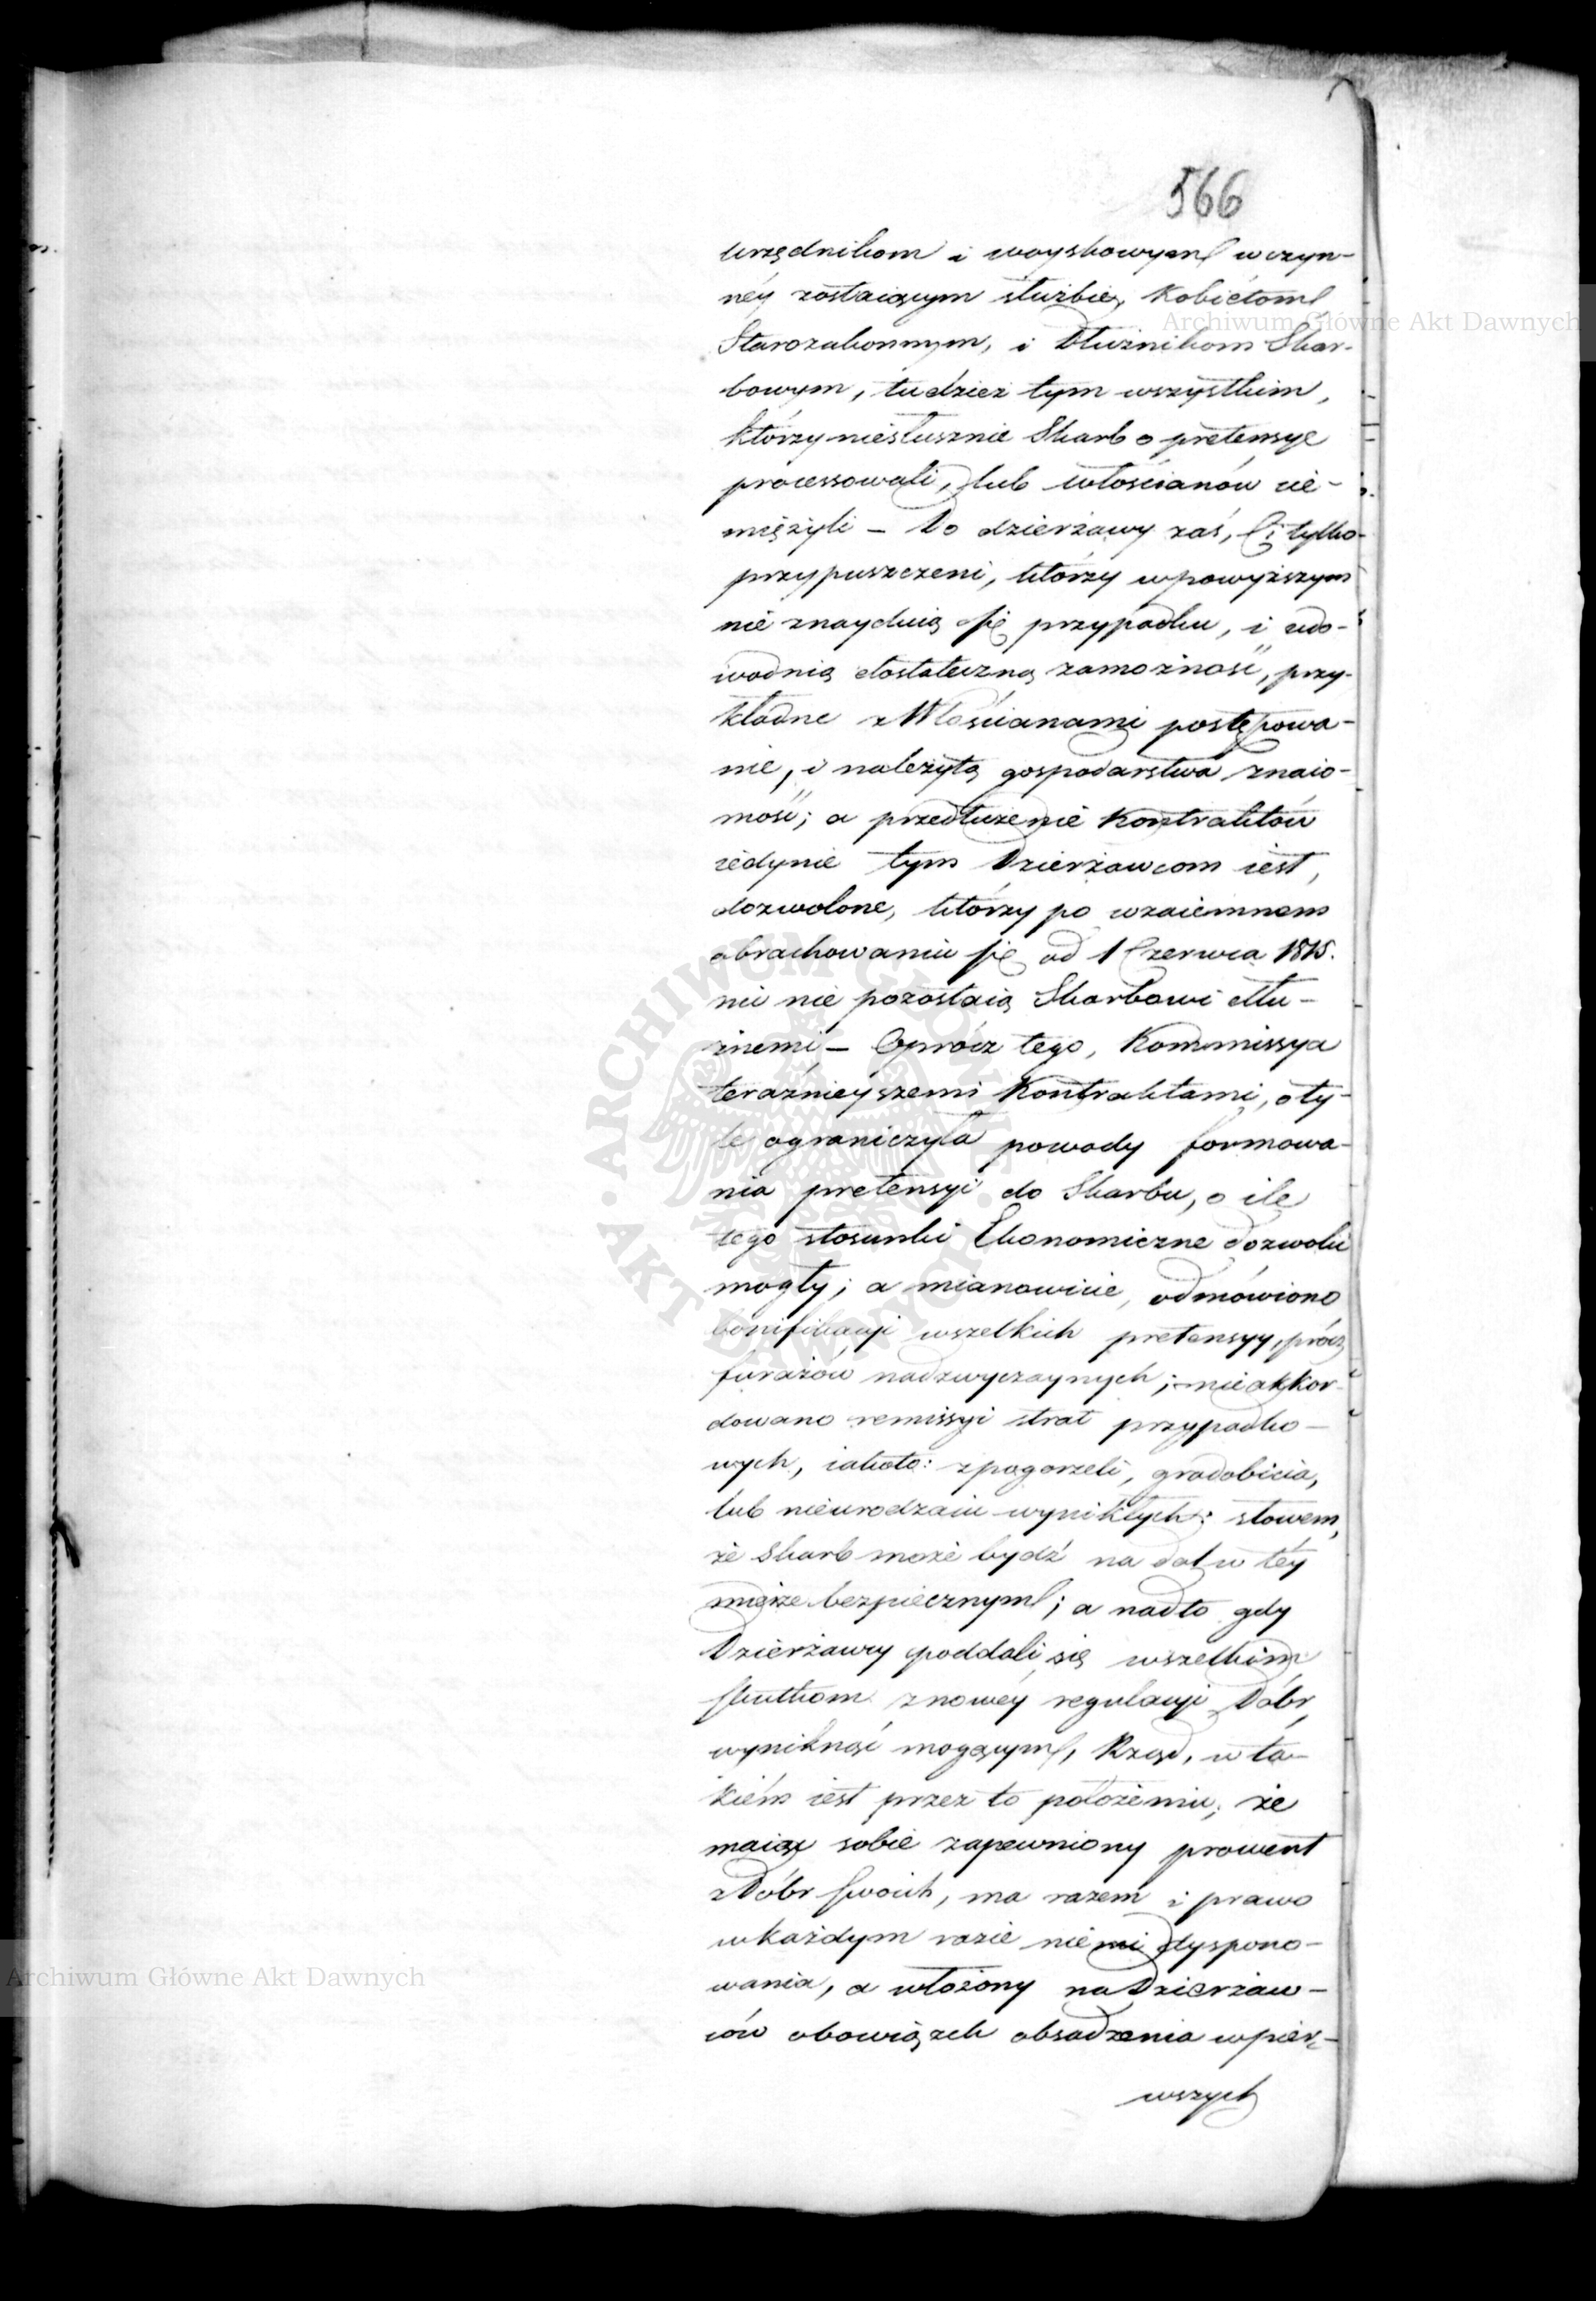 566
urzędnikom i woyskowym w czyn-
néy zostaiącym służbie, Kobiétom
Starozakonnym, i Dłużnikom Skar-
bowym, tudzież tym wszystkim,
którzy niesłusznie Skarb o pretensye
processowali, lub włościanów cie-
miężyli – Do dzierżawy zaś, Ci tylko
przypuszczeni, którzy w powyższym
nie znayduią się przypadku, i udo-
wodnią dostateczną zamożność, przy-
kładne z Włościanami postępowa-
nie, i należytą gospodarstwa znaio-
mość; a przedłużenie Kontraktów
iedynie tym Dzierżawcom iest,
dozwolone, którzy po wzaiemnem
obrachowaniu się od 1 Czerwca 1815.
nic nie pozostaią Skarbowi dłu-
żnemi – Oprócz tego, Kommissya
teraźnieyszemi Kontraktami, o ty-
le ograniczyła powody formowa-
nia pretensyi do Skarbu, o ile
tego stosunki Ekonomiczne dozwolić
mogły; a mianowicie, odmówiono
bonifikacyi wszelkich pretensyy, prócz
furażów nadzwyczaynych; nie akkor-
dowano remissyi strat przypadko-
wych, iakoto: z pogorzeli, gradobicia,
lub nieurodzaiu wynikłych; słowem,
że Skarb może bydź na dal w téy
mierze bezpiecznym; a nadto gdy
Dzierżawcy poddali się wszelkim
skutkom z nowéy regulacyi Dóbr,
wyniknąć mogącym, Rząd, w ta-
kiém iest przez to położeniu, że
maiąc sobie zapewniony prowent
z Dóbr swoich, ma razem i prawo
w każdym razie niemi dyspono-
wania, a włożony na Dzierżaw-
ców obowiązek obsadzenia w pier-
wszych
Archiwum Główne Akt Dawnych
Archiwum Główne Akt Dawnych
ARCHIWUM GŁÓWNE AKT DAWNYCH